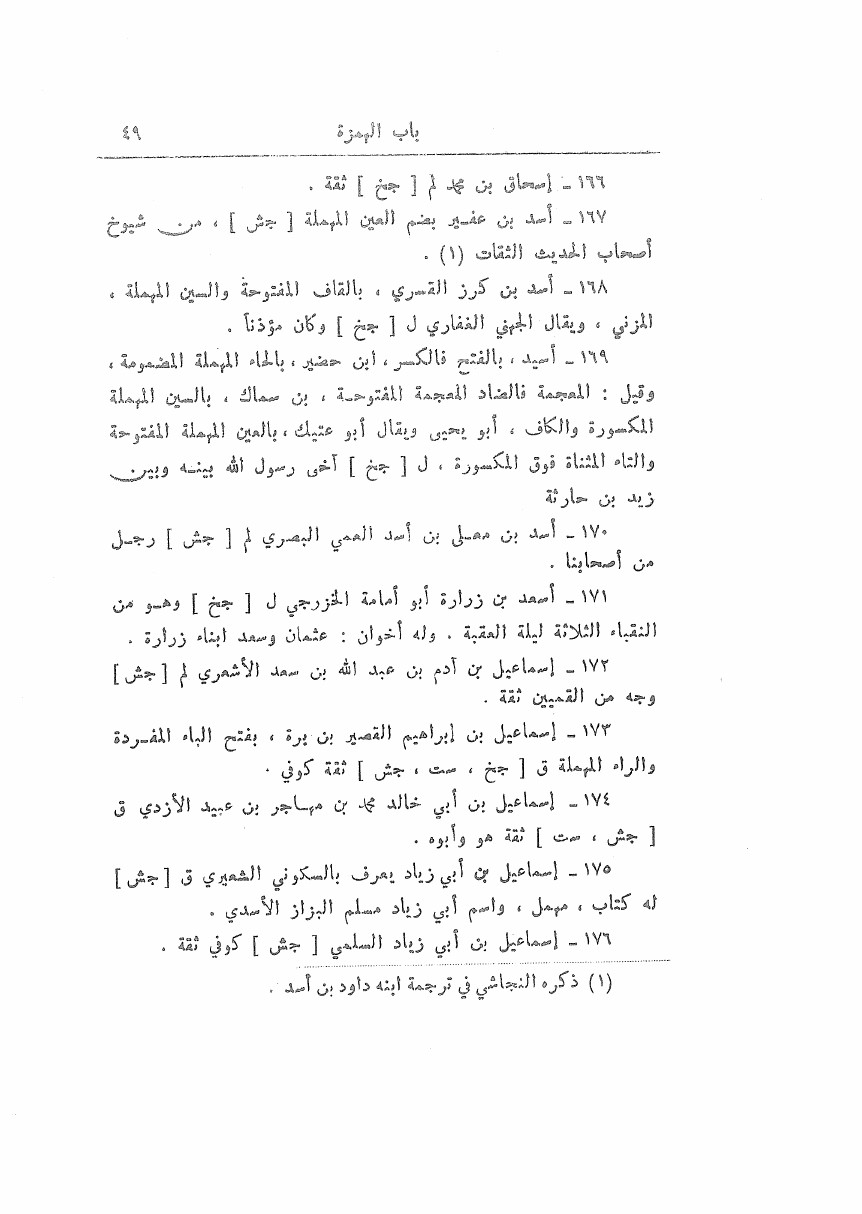 باب الهمزة ٤٩
١٦٦ ـ إسحاق بن محمد لم [ جخ ] ثقة .
١٦٧ ـ أسد بن عفير بضم العين المهملة [ جش ] ، من شيوخ
أصحاب الحديث الثقات (١) .
١٦٨ ـ أسد بن كرز القسري ، بالقاف المفتوحة والسين المهملة ،
المزني ، ويقال الجهني الغفاري ل [ جخ ] وكان مؤذناً .
١٦٩ ـ أسيد ، بالفتح فالكسر ، ابن حضير ، بالحاء المهملة المضمومة ،
وقيل : المعجمة فالضاد المعجمة المفتوحة ، بن سماك ، بالسين المهملة
المكسورة والكاف ، أبو يحيى ويقال أبو عتيك ، بالعين المهملة المفتوحة
والتاء المثناة فوق المكسورة ، ل [ جخ ] آخى رسول الله بينه وبين
زيد بن حارثة
١٧٠ ـ أسد بن معلى بن أسد العمي البصري لم [ جش ] رجل
من أصحابنا .
١٧١ ـ أسعد بن زرارة أبو أمامة الخزرجي ل [ جخ ] وهو من
النقباء الثلاثة ليلة العقبة . وله أخوان : عثمان وسعد ابناء زرارة .
١٧٢ ـ إسماعيل بن آدم بن عبد الله بن سعد الأشعري لم [ جش ]
وجه من القميين ثقة .
١٧٣ ـ إسماعيل بن إبراهيم القصير بن برة ، بفتح الباء المفردة
والراء المهملة ق [ جخ ، ست ، جش ] ثقة كوفي .
١٧٤ ـ إسماعيل بن أبي خالد محمد بن مهاجر بن عبيد الأزدي ق
[ جش ، ست ] ثقة هو وأبوه .
١٧٥ ـ إسماعيل بن أبي زياد يعرف بالسكوني الشعيري ق [ جش ]
له كتاب ، مهمل ، واسم أبي زياد مسلم البزاز الأسدي .
١٧٦ ـ إسماعيل بن أبي زياد السلمي [ جش ] كوفي ثقة .
(١) ذكره النجاشي في ترجمة ابنه داود بن أسد .